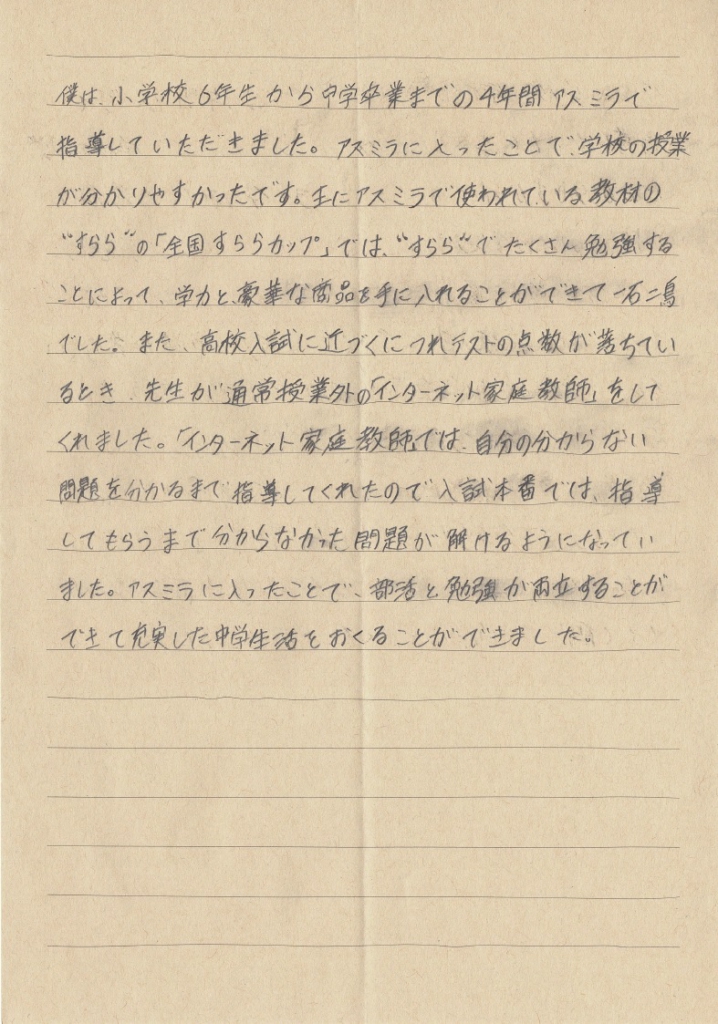 僕は、小学校6年生から中学卒業までの4年間アスミラで
指導していただきました。アスミラに入ったことで、学校の授業
が分かりやすかったです。主にアスミラで使われている教材の
“すらら“の「全国すららカップ」では、“すらら“でたくさん勉強する
ことによって、学力と、豪華な商品を手に入れることができて一石二鳥
でした。また、高校入試に近づくにつれテストの点数が落ちてい
るとき、先生が通常授業外の「インターネット家庭教師」をして
くれました。「インターネット家庭教師」では、自分の分からない
問題を分かるまで指導してくれたので入試本番では、指導
してもらうまで分からなかった問題が解けるようになってい
ました。アスミラに入ったことで、部活と勉強が両立することが
できて充実した中学生活をおくることができました。